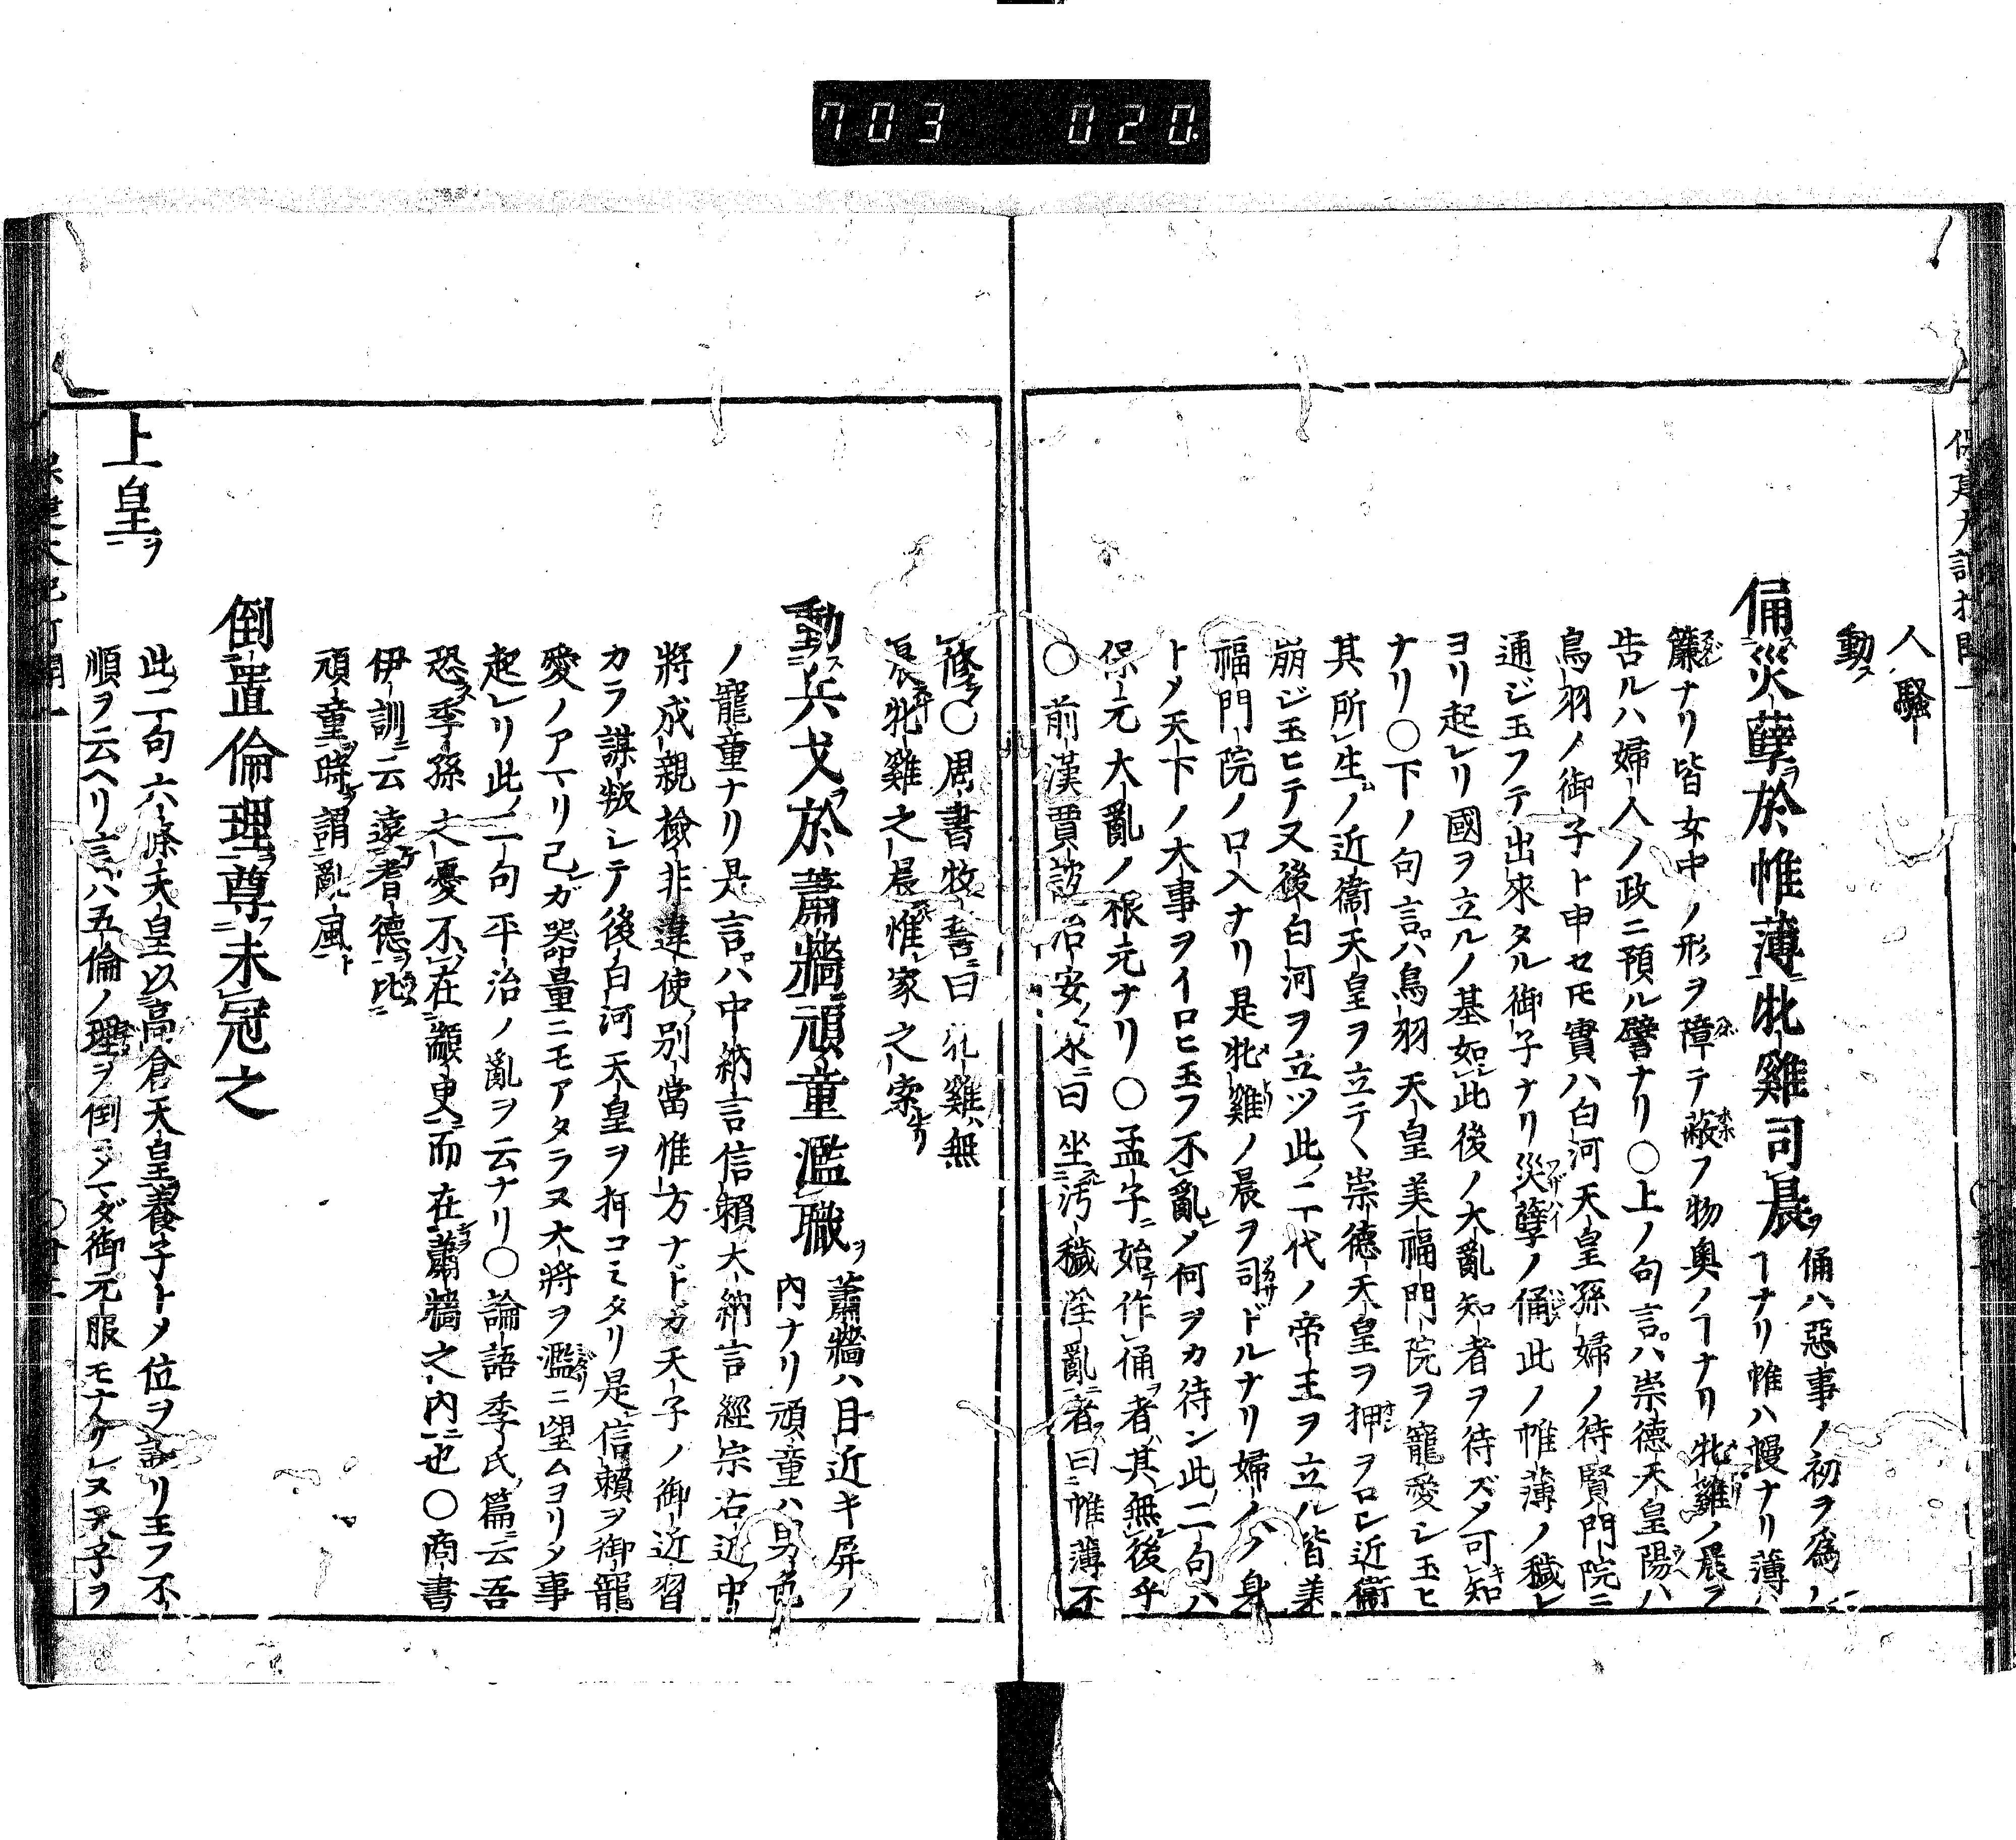 703 020
人騒
動ス
俑災孽ヲ於帷薄牝雞司晨ヲ俑ハ惡事ノ初ヲ爲ノ
ヿナリ帷ハ幔ナリ薄ハ
簾ナリ皆女中ノ形ヲ障テ蔽フ物奥ノヿナリ牝雞ノ晨ヲ
告ルハ婦人ノ政ニ預ル譬ナリ○上ノ句言ハ崇德天皇陽ハ
鳥羽ノ御子ト申セ𪜈實ハ白河天皇孫婦ノ待賢門院ニ
通ジ玉フテ出來タル御子ナリ災孽ノ俑此ノ帷薄ノ穢レ
ヨリ起レリ國ヲ立ルノ基如此後ノ大亂知者ヲ待ズメ可知
ナリ○下ノ句言ハ鳥羽天皇美福門院ヲ寵愛シ玉ヒ
其所生ノ近衞天皇ヲ立テヽ崇德天皇ヲ押ヲロシ近衞
崩ジ玉ヒテ又後白河ヲ立ツ此二代ノ帝王ヲ立ル皆美
福門院ノ口入ナリ是牝雞ノ晨ヲ司ドルナリ婦ノ人ノ身
トメ天下ノ大事ヲイロヒ玉フ不亂メ何ヲカ待ン此二句ハ
保元大亂ノ根元ナリ○孟子ニ始作俑者其無後乎
○前漢賈誼治安ノ策ニ曰坐汚穢淫亂者曰帷薄不
修○周書牧誓ニ曰牝雞無
晨牝雞之晨惟家之索
動兵戈ヲ於蕭牆頑童濫職ヲ蕭牆ハ目近キ屏ノ
內ナリ頑童ハ男色
ノ寵童ナリ是言ハ中納言信賴大納言經宗右近中
將成親檢非違使別當惟方ナドガ天子ノ御近習
カラ謀叛シテ後白河天皇ヲ押コミタリ是信賴ヲ御寵
愛ノアマリ己ガ器量ニモアタラヌ大將ヲ濫ニ望ムヨリメ事
起レリ此ノ二句平治ノ亂ヲ云ナリ○論語季氏篇ニ云吾
恐季孫之憂不在顓臾而在蕭牆之內也○商書
伊訓ニ云遠耆德比
頑童時謂亂風
倒置倫理尊未冠之
此二句六條天皇以高倉天皇養子トメ位ヲ讓リ玉フ不
順ヲ云ヘリ言ハ五倫ノ理ヲ倒メマダ御元服モナケレヌ天子ヲ
上皇ヲ